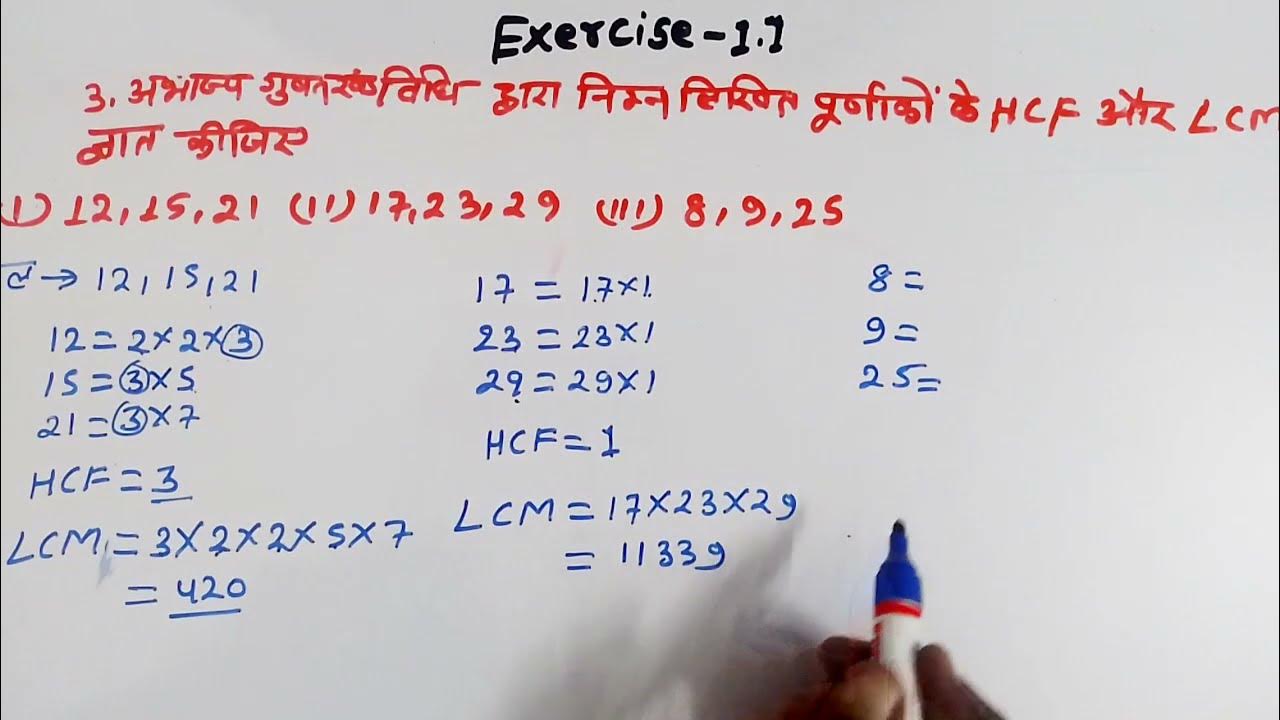 Exercise-1.1
3. अभाज्य गुणनखण्ड विधि द्वारा निम्न लिखित पूर्णाकों के HCF और LCM
ज्ञात कीजिए
(i) 12, 15, 21 (ii) 17, 23, 29 (iii) 8, 9, 25
→ 12, 15, 21
12 = 2×2×3
15 = 3×5
21 = 3×7
HCF = 3
LCM = 3×2×2×5×7
= 420
17 = 17×1
23 = 23×1
29 = 29×1
HCF = 1
LCM = 17×23×29
= 11339
8 =
9 =
25 =